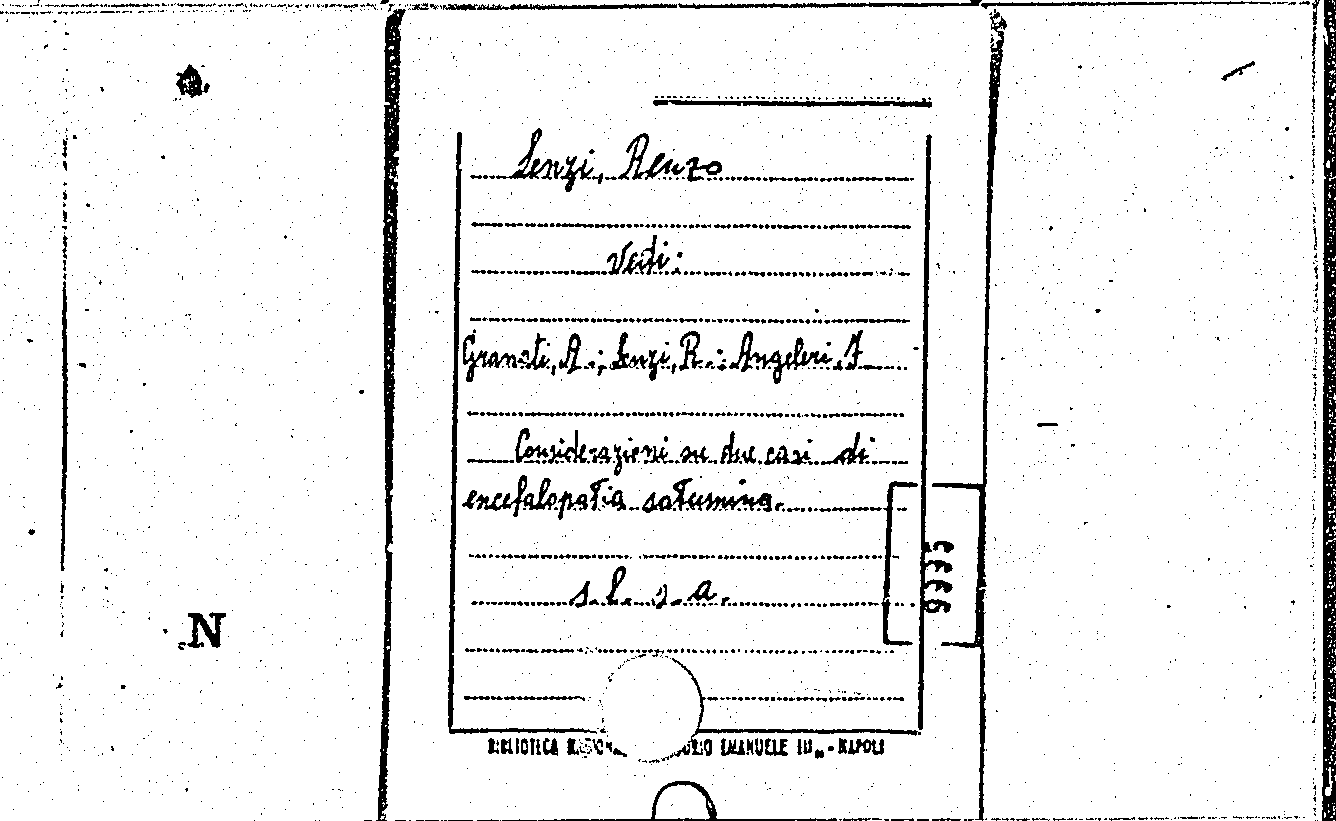 Lenzi, Renzo
Vedi:
Granati, A.; Lenzi, R.; Angeleri, F.
Considerazioni su due casi di
encefalopatia saturnina.
s.l. s.a.
N
BIBLIOTECA EMANUELE III - NAPOLI